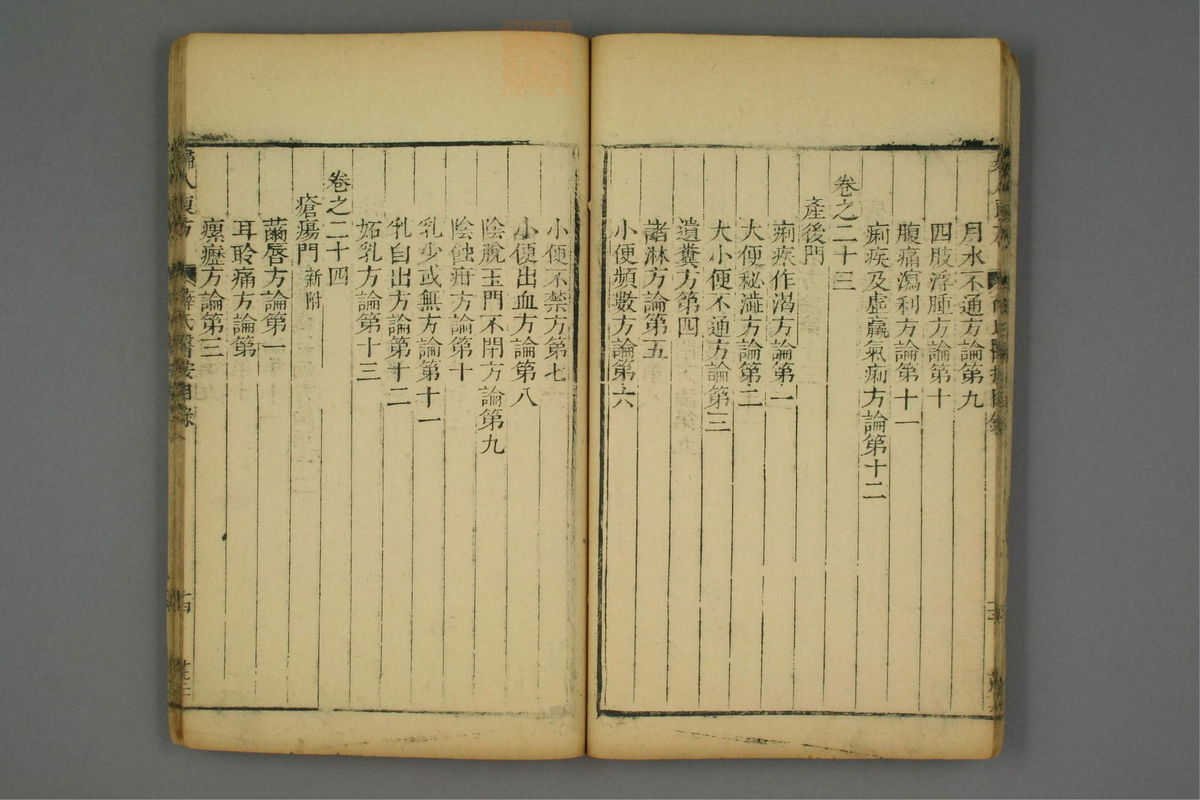 月水不通方論第九
四肢浮腫方論第十
腹痛瀉利方論第十一
痢疾及虛羸氣痢方論第十二
卷之二十三
產後門
痢疾作渴方論第一
大便秘澁方論第二
大小便不通方論第三
遺糞方第四
諸淋方論第五
小便頻數方論第六
小便不禁方第七
小便出血方論第八
陰脫玉門不閉方論第九
陰蝕疳方論第十
乳少或無方論第十一
乳自出方論第十二
妬乳方論第十三
卷之二十四
瘡瘍門 新附
繭唇方論第一
耳聆痛方論第
瘰癧方論第三
婦人良方 薛氏醫按目錄